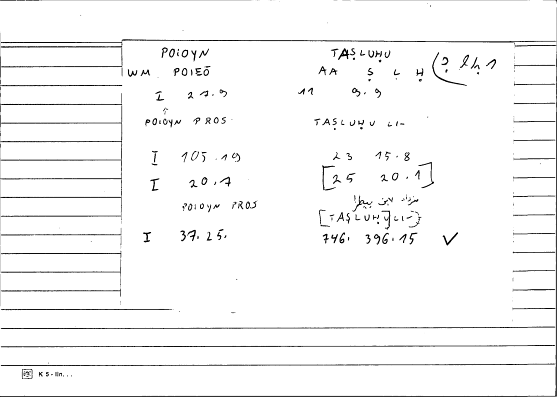 POIOYN TAṢLUḤU
WM POIEŌ AA Ṣ L Ḥ
I 27.9 11 9.9
POIOYN PROS TAṢLUḤU LI-
I 105.19 23 15.8
I 20.7 [25 20.1]
POIOYN PROS [TAṢLUḤU LI-]
I 37.25. 746. 396.15 ✓
K 5 - lin. . .